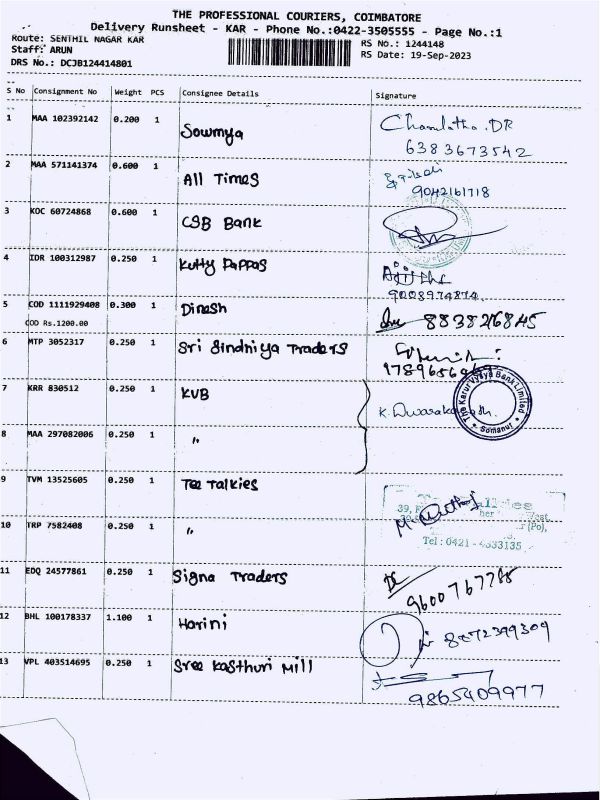 THE PROFESSIONAL COURIERS, COIMBATORE
Delivery Runsheet - KAR - Phone No.:0422-3505555 - Page No.:1
Route: SENTHIL NAGAR KAR RS No.: 1244148
Staff: ARUN RS Date: 19-Sep-2023
DRS No.: DCJB124414801
S No Consignment No Weight PCS Consignee Details Signature
1 MAA 102392142 0.200 1 Sowmya Charulatha.DR
6383673542
2 MAA 571141374 0.600 1 All Times
9042161718
3 KOC 60724868 0.600 1 CSB Bank
4 IDR 100312987 0.250 1 Kutty Pappas
9008974874
5 COD 1111929408 0.300 1 Dinesh 883826845
COD Rs.1200.00
6 MTP 3052317 0.250 1 Sri Sindniya Traders
7 KRR 830512 0.250 1 KVB K. Dwarakanath.
The Karur Vysya Bank Limited
Somanur
8 MAA 297082006 0.250 1 "
9 TVM 13525605 0.250 1 Tee Talkies
10 TRP 7582408 0.250 1 "
Tel : 0421 - 4333135
11 EDQ 24577861 0.250 1 Signa Traders
9600767788
12 BHL 100178337 1.100 1 Harini 8872399309
13 VPL 403514695 0.250 1 Sree Kasthuri Mill
9865409977